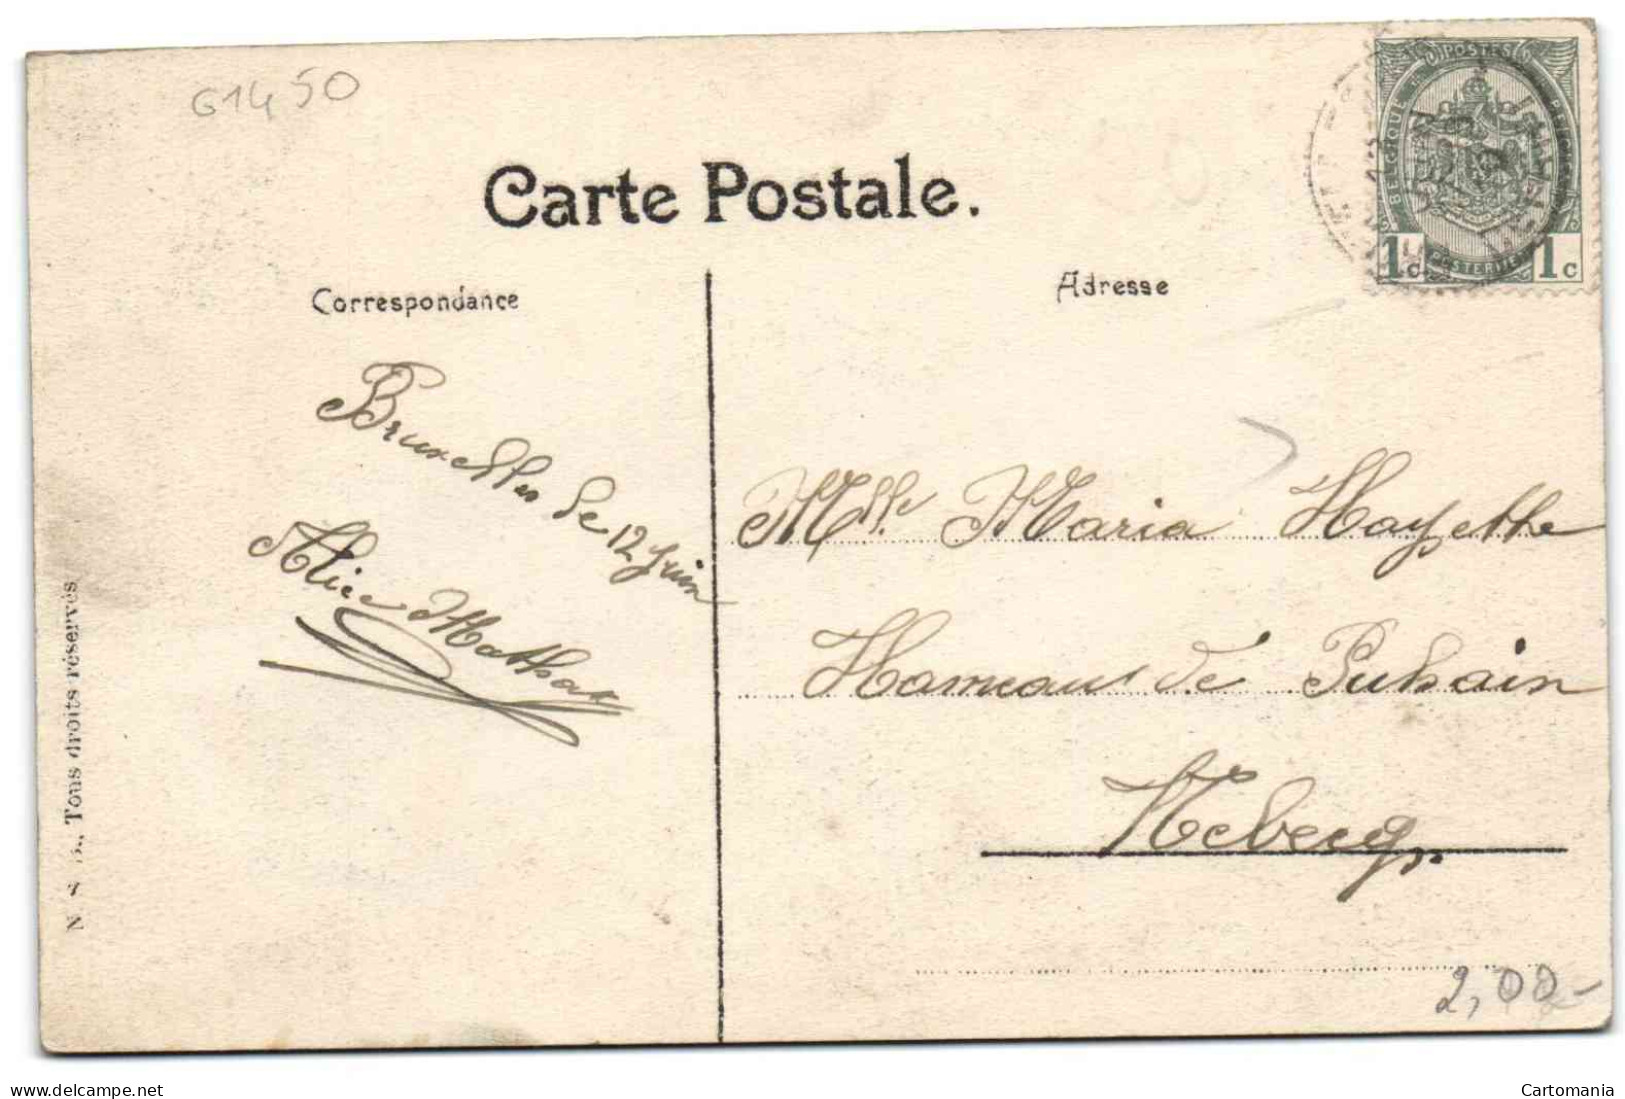 61450
Carte Postale.
POSTES
BELGIQUE
1c
1c
Correspondance
Adresse
Bruxelles le 12 Juin
Alice
Mlle Maria Hayette
Hameau de Puhain
Heberg
2,00-
Tous droits réservés
www.delcampe.net
Cartomania